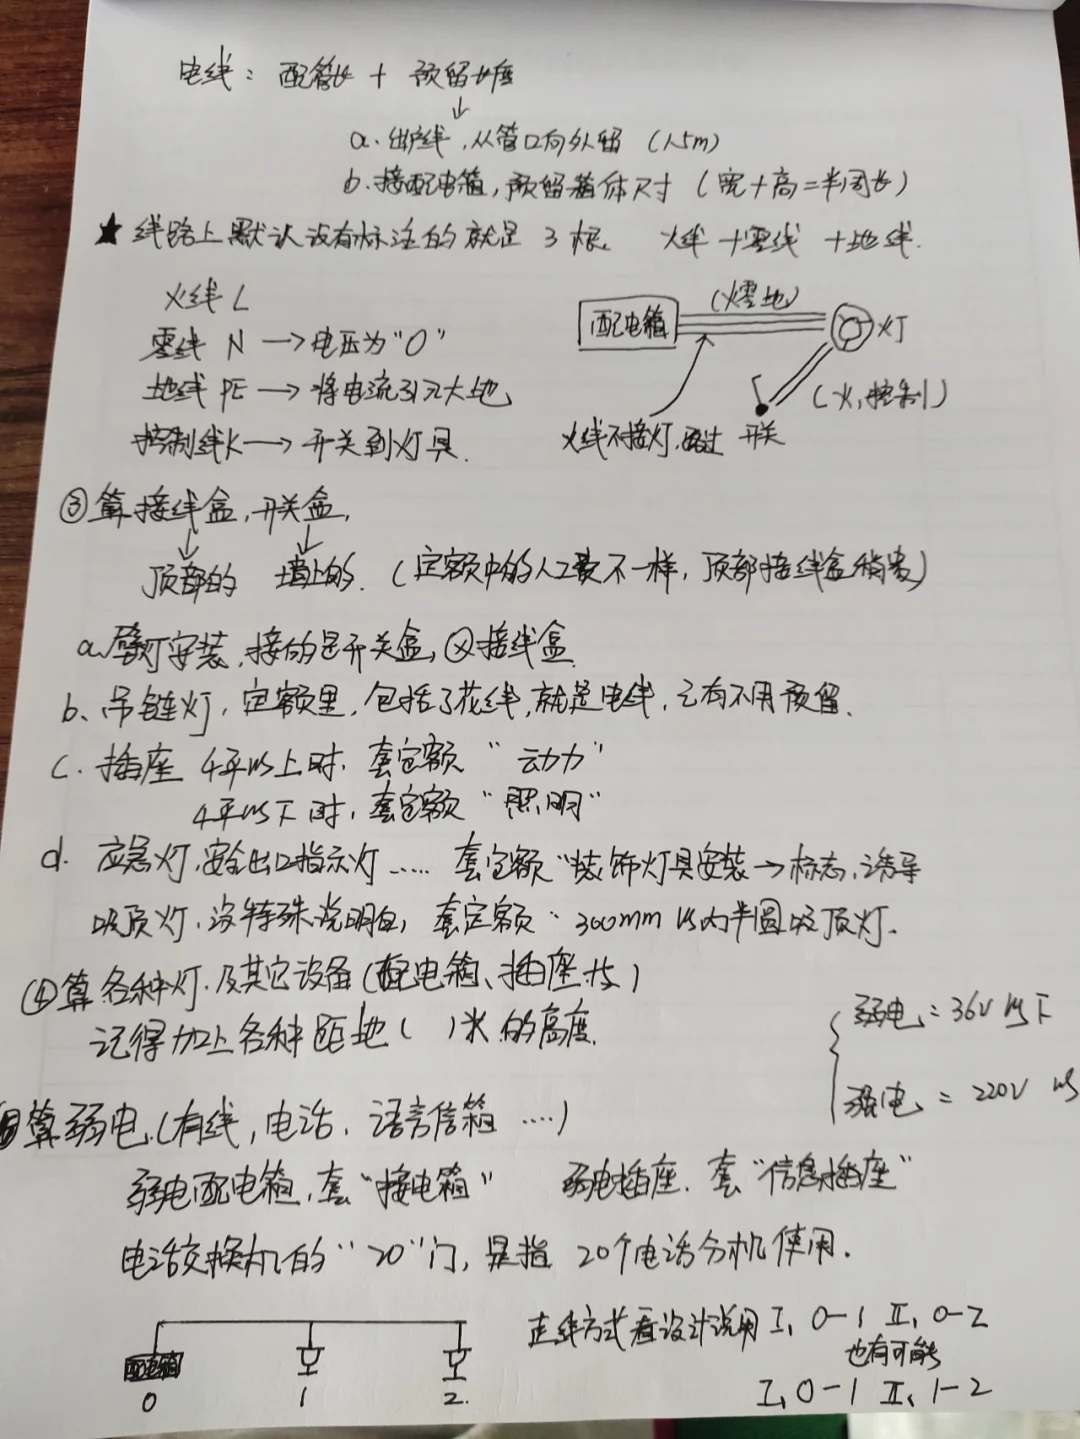 电线：配管长 + 预留长度
↓
a. 出户线，从管口向外留（1.5m）
b. 接配电箱，预留箱体尺寸（宽+高=半周长）
★ 线路上默认没有标注的就是 3 根。 火线 +零线 +地线.
火线 L
零线 N → 电压为“0”
地线 PE → 将电流引入大地
控制线K → 开关到灯具.
配电箱
(火零地)
灯
(火,控制)
火线不接灯,路过 开关
③算接线盒,开关盒,
↓ ↓
顶部的 墙上的.（定额中的人工费不一样,顶部接线盒稍贵）
a.壁灯安装,接的是开关盒,接线盒
b、吊链灯,定额里,包括了花线,就是电线,已有不用预留.
c. 插座 4平以上时,套定额“动力”
4平以下时,套定额“照明”
d. 应急灯,安全出口指示灯…… 套定额“装饰灯具安装→标志,诱导
吸顶灯,没特殊说明的,套定额“300mm以内半圆吸顶灯.
④算各种灯.及其它设备（配电箱、插座）
记得加上各种距地（ ）米的高度.
弱电=36V以下
强电 = 220V 以
算弱电.（有线,电话.语言信箱 ....）
弱电配电箱,套“接电箱” 弱电插座.套“信息插座”
电话交换机有的“20”门,是指 20个电话分机使用.
走线方式看设计说明 I、0-1 II、0-2
也有可能
I、0-1 II、1-2
配电箱
0 1 2.